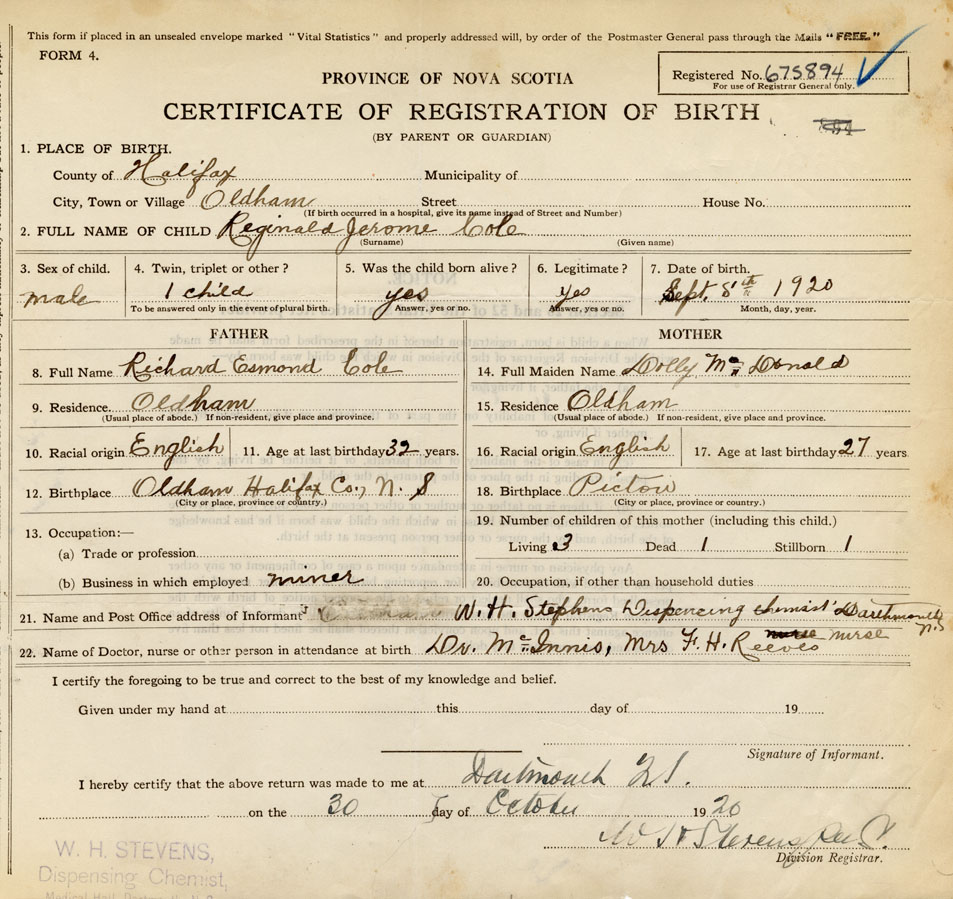 This form if placed in an unsealed envelope marked "Vital Statistics" and properly addressed will, by order of the Postmaster General pass through the Mails "FREE."
FORM 4.
Registered No. 675894
For use of Registrar General only.
PROVINCE OF NOVA SCOTIA
CERTIFICATE OF REGISTRATION OF BIRTH
(BY PARENT OR GUARDIAN)
1. PLACE OF BIRTH.
County of Halifax Municipality of
City, Town or Village Oldham Street House No.
(If birth occurred in a hospital, give its name instead of Street and Number)
2. FULL NAME OF CHILD Reginald Jerome Cole
(Surname) (Given name)
3. Sex of child. 4. Twin, triplet or other? 5. Was the child born alive? 6. Legitimate? 7. Date of birth.
male 1 child yes yes Sept. 8th 1920
To be answered only in the event of plural birth. Answer, yes or no. Answer, yes or no. Month, day, year.
FATHER
8. Full Name Richard Esmond Cole
9. Residence Oldham
(Usual place of abode.) If non-resident, give place and province.
10. Racial origin English 11. Age at last birthday 32 years.
12. Birthplace Oldham Halifax Co., N. S
(City or place, province or country.)
13. Occupation:—
(a) Trade or profession
(b) Business in which employed miner
MOTHER
14. Full Maiden Name Dolly Mc Donald
15. Residence Oldham
(Usual place of abode.) If non-resident, give place and province.
16. Racial origin English 17. Age at last birthday 27 years
18. Birthplace Pictou
(City or place, province or country.)
19. Number of children of this mother (including this child.)
Living 3 Dead 1 Stillborn 1
20. Occupation, if other than household duties
21. Name and Post Office address of Informant W. H. Stephens Dispencing chemist Darthmouth N.S
22. Name of Doctor, nurse or other person in attendance at birth Dr. Mc Innis, Mrs F. H. Reeves nurse
I certify the foregoing to be true and correct to the best of my knowledge and belief.
Given under my hand at this day of 19
Signature of Informant.
I hereby certify that the above return was made to me at Dartmouth N.S.
on the 30 day of October 1920
W H Stevens
Division Registrar.
W. H. STEVENS,
Dispensing Chemist,